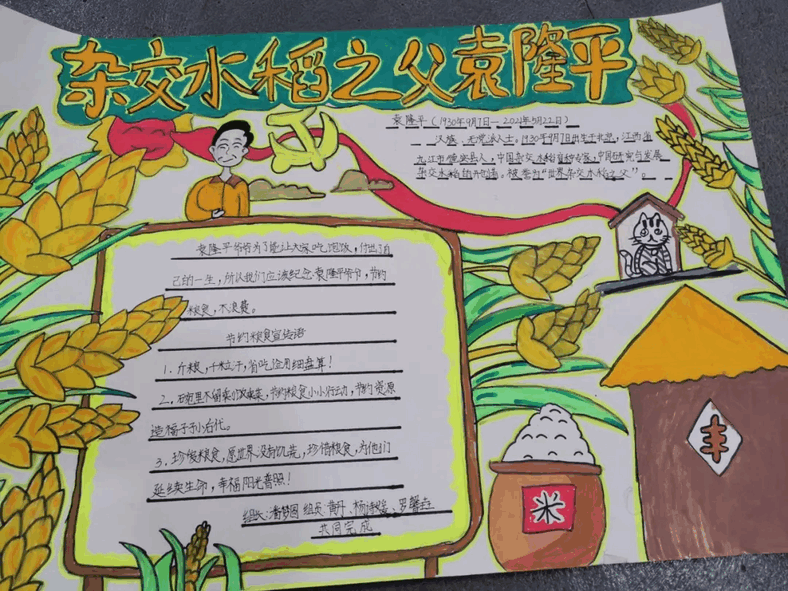 杂交水稻之父袁隆平
袁隆平（1930年9月7日—2021年5月22日）
汉族、无党派人士。1930年9月7日出生于北京，江西省
九江市德安县人，中国杂交水稻育种专家，中国研究与发展
杂交水稻的开创者。被誉为“世界杂交水稻之父”。
袁隆平爷爷为了能让大家吃饱饭，付出了自
己的一生，所以我们应该纪念袁隆平爷爷，节约
粮食，不浪费。
节约粮食宣传语
1、斤粮，千粒汗，省吃俭用细盘算！
2、碗里不留剩饭菜，节约粮食小小行动，节约资源
造福子子小后代。
3、珍惜粮食，愿世界没有饥荒，珍惜粮食，为他们
延续生命，幸福阳光普照！
组长：潘梦圆 组员：黄丹、杨诗、罗馨
共同完成
米
丰